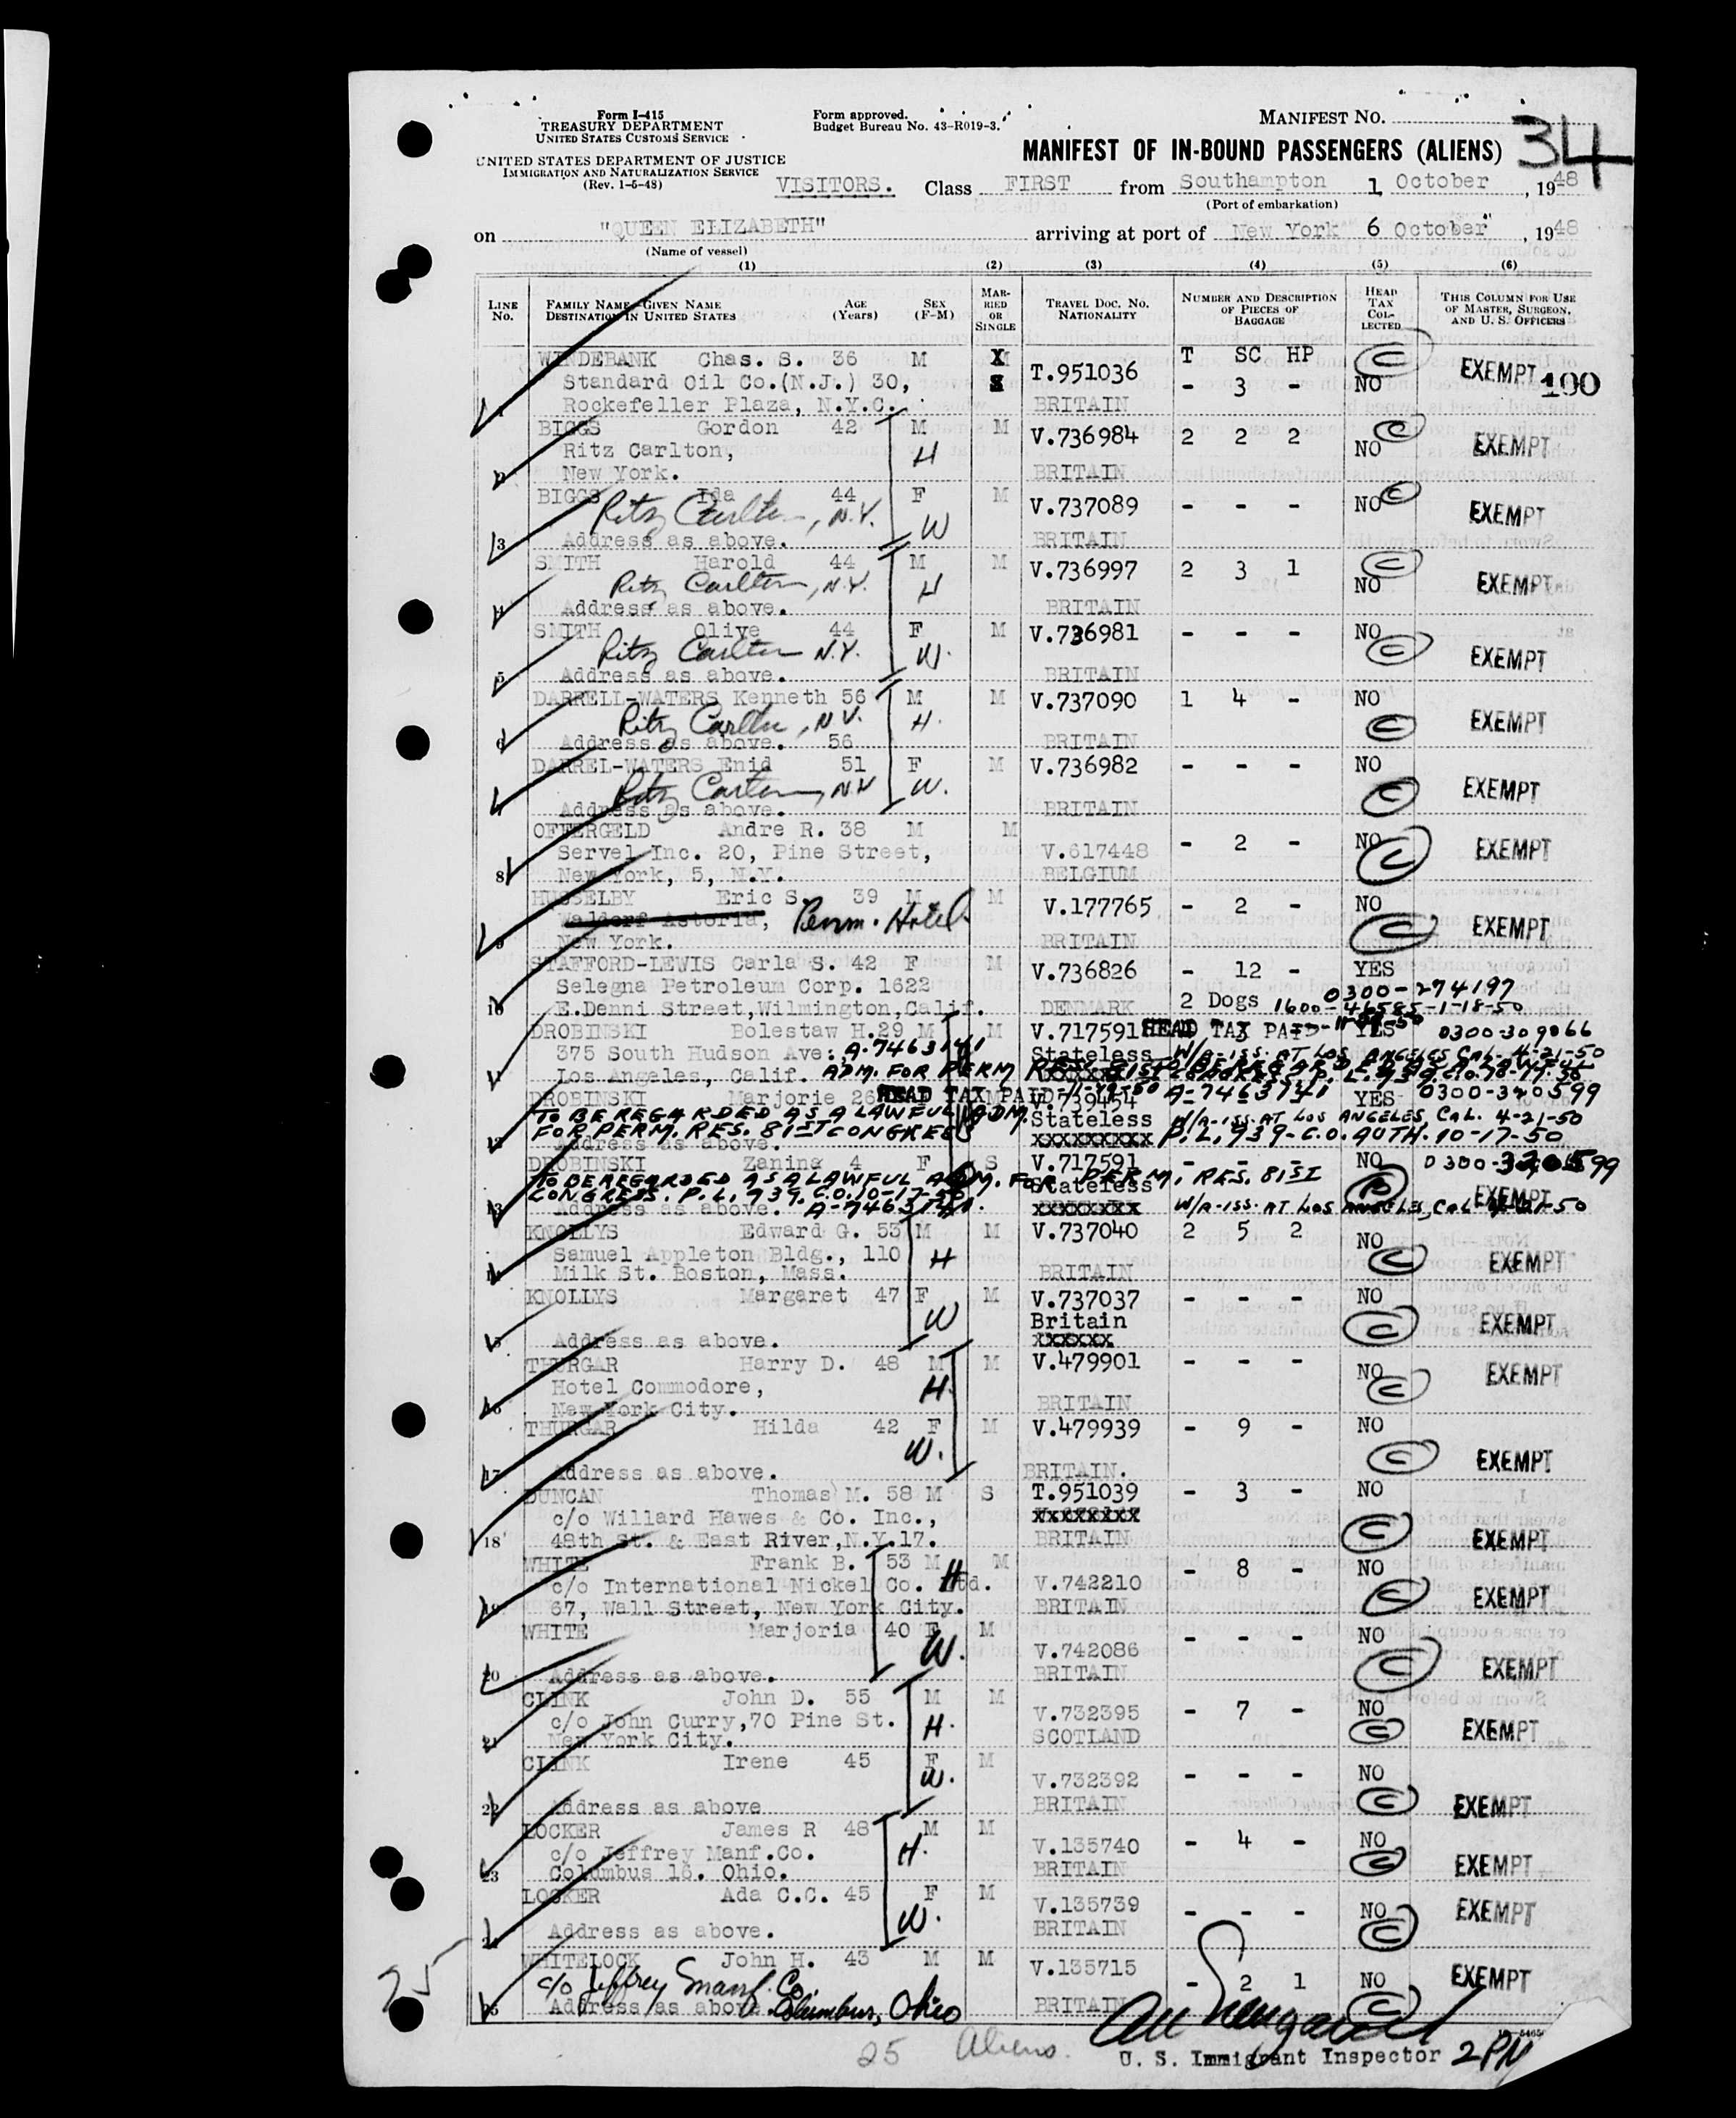 Form I-415
TREASURY DEPARTMENT
UNITED STATES CUSTOMS SERVICE
UNITED STATES DEPARTMENT OF JUSTICE
IMMIGRATION AND NATURALIZATION SERVICE
(Rev. 1-5-48)
Form approved.
Budget Bureau No. 43-R019-3.
MANIFEST NO.
34
MANIFEST OF IN-BOUND PASSENGERS (ALIENS)
VISITORS. Class FIRST from Southampton 1 October, 1948
(Port of embarkation)
on "QUEEN ELIZABETH" arriving at port of New York 6 October, 1948
(Name of vessel)
(1) (2) (3) (4) (5) (6)
LINE No. FAMILY NAME—GIVEN NAME DESTINATION IN UNITED STATES AGE (Years) SEX (F-M) MARRIED OR SINGLE TRAVEL DOC. NO. NATIONALITY NUMBER AND DESCRIPTION OF PIECES OF BAGGAGE HEAD TAX COLLECTED THIS COLUMN FOR USE OF MASTER, SURGEON, AND U. S. OFFICERS
WINDEBANK Chas. S. 36 M X T SC HP C
Standard Oil Co.(N.J.) 30, S T.951036 - 3 - NO EXEMPT 100
Rockefeller Plaza, N.Y.C. BRITAIN
BIGGS Gordon 42 M M V.736984 2 2 2 NO C EXEMPT
Ritz Carlton, H
2 New York. BRITAIN
BIGGS Ida 44 F M V.737089 - - - NO C EXEMPT
Ritz Carlton, N.Y. W
3 Address as above. BRITAIN
SMITH Harold 44 M M V.736997 2 3 1 NO C EXEMPT
Ritz Carlton, N.Y. H
4 Address as above. BRITAIN
SMITH Olive 44 F M V.736981 - - - NO C EXEMPT
Ritz Carlton N.Y. W.
5 Address as above. BRITAIN
DARRELL-WATERS Kenneth 56 M M V.737090 1 4 - NO C EXEMPT
Ritz Carlton, N.Y. H.
6 Address as above. 56 BRITAIN
DARREL-WATERS Enid 51 F M V.736982 - - - NO C EXEMPT
Ritz Carlton, N.Y. W.
Address as above. BRITAIN
OFFERGELD Andre R. 38 M M - 2 - NO C EXEMPT
Servel Inc. 20, Pine Street, V.617448
8 New York, 5, N.Y. BELGIUM
HUSSELBY Eric S. 39 M M V.177765 - 2 - NO C EXEMPT
Waldorf Astoria, Penn. Hotel
9 New York. BRITAIN
STAFFORD-LEWIS Carla S. 42 F M V.736826 - 12 - YES
Selegna Petroleum Corp. 1622 0300-274197
10 E.Denni Street,Wilmington,Calif. DENMARK 2 Dogs 1600-46585-1-18-50
DROBINSKI Bolestaw H.29 M M V.717591 HEAD TAX PAID YES 0300-309066
375 South Hudson Ave: A-7463141 Stateless W/A-ISS. AT LOS ANGELES CAL. 4-21-50
Los Angeles, Calif. ADM. FOR PERM RES. 81ST CONGRESS P.L. 939
DROBINSKI Marjorie 26 HEAD TAX PAID V.739454 A-7463141 YES
TO BE REGARDED AS A LAWFUL ADM. Stateless W/A-ISS. AT LOS ANGELES CAL. 4-21-50
FOR PERM. RES. 81ST CONGRESS XXXXXXXXX P.L. 939-C.O. AUTH. 10-17-50
12 Address as above.
DROBINSKI Zanina 4 F S V.717591 - - - NO
TO BE REGARDED AS A LAWFUL ADM. FOR PERM. RES. 81ST Stateless EXEMPT
CONGRESS. P.L. 939. C.O. 10-17-50
13 Address as above. A-7463141. XXXXXXXX W/A-ISS. AT LOS ANGELES, CAL. 4-21-50
KNOLLYS Edward G. 53 M M V.737040 2 5 2 NO C EXEMPT
Samuel Appleton Bldg., 110 H
14 Milk St. Boston, Mass. BRITAIN
KNOLLYS Margaret 47 F M V.737037 - - - NO C EXEMPT
W Britain
Address as above. XXXXXX
THURGAR Harry D. 48 M M V.479901 - - - NO C EXEMPT
Hotel Commodore, H.
16 New York City. BRITAIN
THURGAR Hilda 42 F M V.479939 - 9 - NO C EXEMPT
W.
17 Address as above. BRITAIN.
DUNCAN Thomas M. 58 M S T.951039 - 3 - NO C EXEMPT
c/o Willard Hawes & Co. Inc., XXXXXXXX
18 48th St. & East River,N.Y.17. BRITAIN
WHITE Frank B. 53 M M - 8 - NO C EXEMPT
c/o International Nickel Co. Ltd. H V.742210
19 67, Wall Street, New York City. BRITAIN
WHITE Marjoria 40 F M - - - NO C EXEMPT
W. V.742086
20 Address as above. BRITAIN
CLINK John D. 55 M M V.732395 - 7 - NO C EXEMPT
c/o John Curry,70 Pine St. H.
21 New York City. SCOTLAND
CLINK Irene 45 F M V.732392 - - - NO C EXEMPT
W.
22 Address as above BRITAIN
LOCKER James R 48 M M V.135740 - 4 - NO C EXEMPT
c/o Jeffrey Manf.Co. H.
23 Columbus 16. Ohio. BRITAIN
LOCKER Ada C.C. 45 F M V.135739 - - - NO C EXEMPT
W.
Address as above. BRITAIN
WHITELOCK John H. 43 M M V.135715 - 2 1 NO C EXEMPT
25 c/o Jeffrey Manf. Co.
Address as above. Columbus, Ohio BRITAIN
25 Aliens.
U. S. Immigrant Inspector 2PM